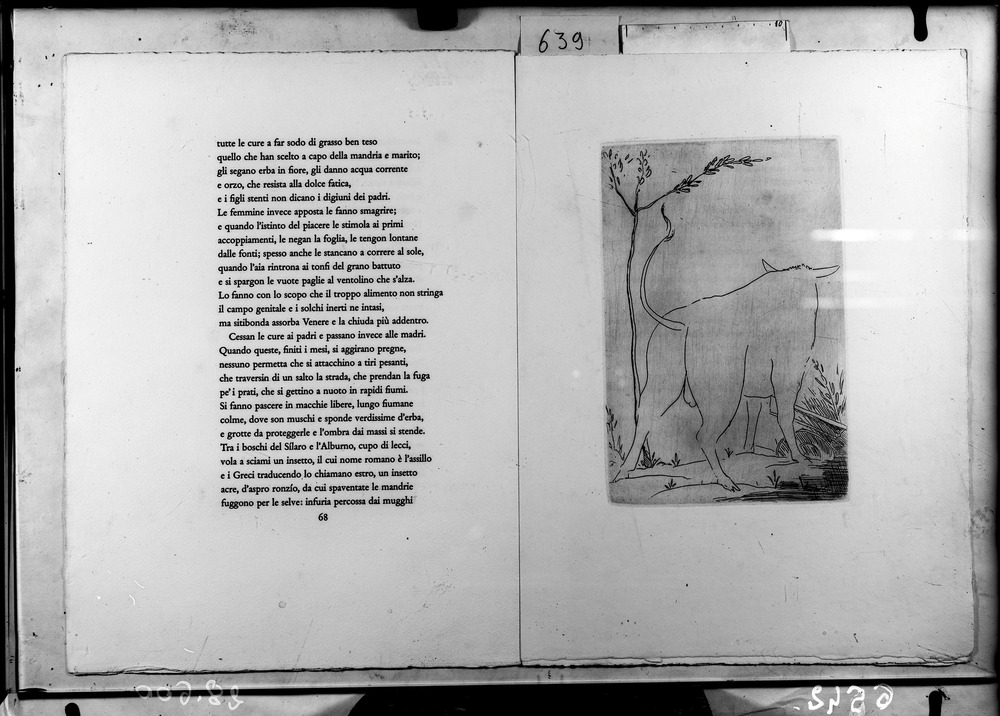 639
10
tutte le cure a far sodo di grasso ben teso
quello che han scelto a capo della mandria e marito;
gli segano erba in fiore, gli danno acqua corrente
e orzo, che resista alla dolce fatica,
e i figli stenti non dicano i digiuni dei padri.
Le femmine invece apposta le fanno smagrire;
e quando l'istinto del piacere le stimola ai primi
accoppiamenti, le negan la foglia, le tengon lontane
dalle fonti; spesso anche le stancano a correre al sole,
quando l'aia rintrona ai tonfi del grano battuto
e si spargon le vuote paglie al ventolino che s'alza.
Lo fanno con lo scopo che il troppo alimento non stringa
il campo genitale e i solchi inerti ne intasi,
ma sitibonda assorba Venere e la chiuda più addentro.
Cessan le cure ai padri e passano invece alle madri.
Quando queste, finiti i mesi, si aggirano pregne,
nessuno permetta che si attacchino a tiri pesanti,
che traversin di un salto la strada, che prendan la fuga
pe' i prati, che si gettino a nuoto in rapidi fiumi.
Si fanno pascere in macchie libere, lungo fiumane
colme, dove son muschi e sponde verdissime d'erba,
e grotte da proteggerle e l'ombra dai massi si stende.
Tra i boschi del Sílaro e l'Alburno, cupo di lecci,
vola a sciami un insetto, il cui nome romano è l'assillo
e i Greci traducendo lo chiamano estro, un insetto
acre, d'aspro ronzío, da cui spaventate le mandrie
fuggono per le selve: infuria percossa dai mugghi
68
28.600
6542